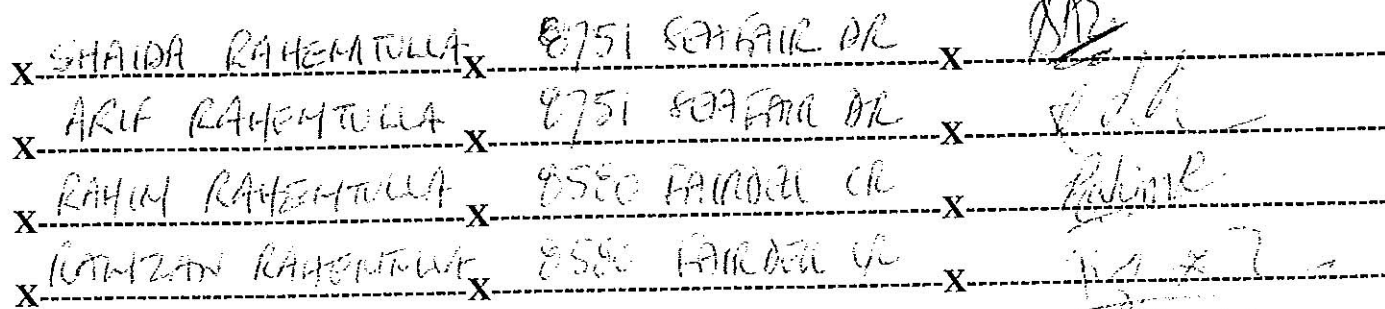 SHAIDA RAHEMTULLA 8751 SEAFAIR DR
X X X
ARIF RAHEMTULLA 8751 SEAFAIR DR
X X X
RAHIM RAHEMTULLA 8580 FAIRDELL CR RahimR
X X X
RAMZAN RAHEMTULLA 8580 FAIRDELL CR
X X X